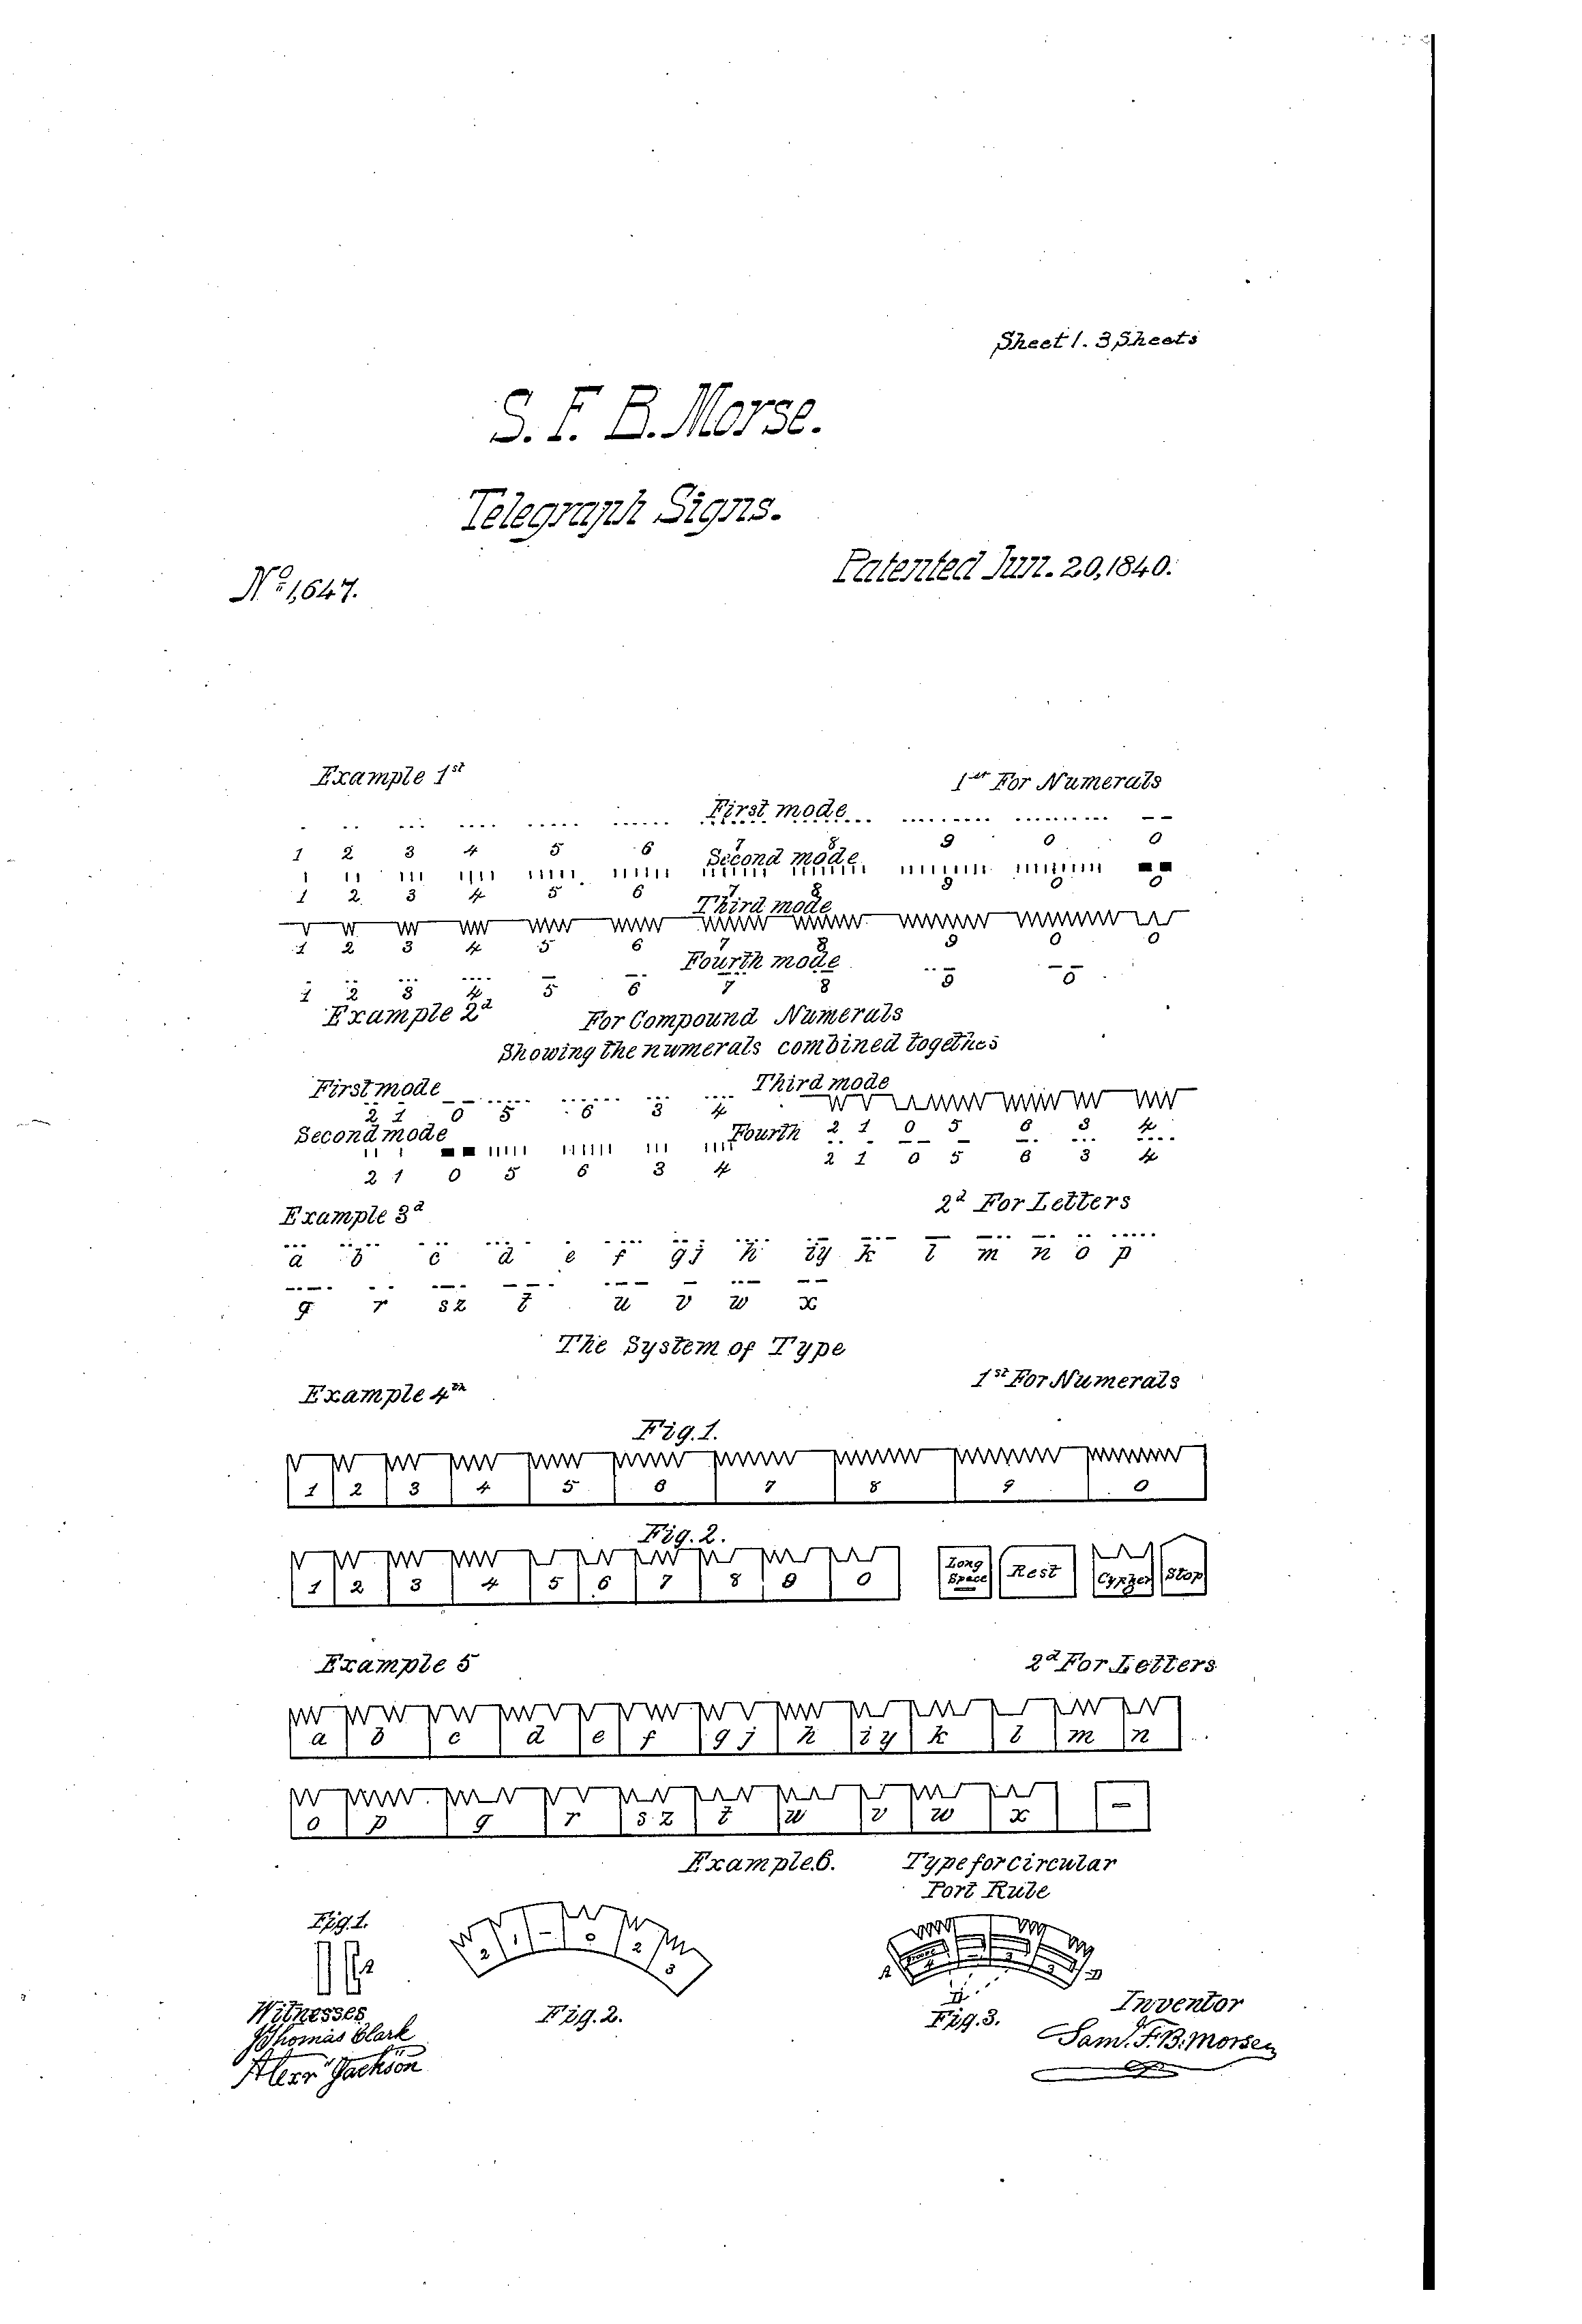 Sheet 1. 3 Sheets
S. F. B. Morse.
Telegraph Signs.
No 1,647.
Patented Jun. 20, 1840.
Example 1st
1st For Numerals
First mode
1 2 3 4 5 6 7 8 9 0 0
Second mode
1 2 3 4 5 6 7 8 9 0 0
Third mode
1 2 3 4 5 6 7 8 9 0 0
Fourth mode
1 2 3 4 5 6 7 8 9 0
Example 2d
For Compound Numerals
Showing the numerals combined togethes
First mode
2 1 0 5 6 3 4
Third mode
2 1 0 5 6 3 4
Second mode
2 1 0 5 6 3 4
Fourth
2 1 0 5 6 3 4
Example 3d
2d For Letters
a b c d e f gj h iy k l m n o p
q r sz t u v w x
The System of Type
Example 4th
1st For Numerals
Fig. 1.
1 2 3 4 5 6 7 8 9 0
Fig. 2.
1 2 3 4 5 6 7 8 9 0 Long Space Rest Cypher Stop
Example 5
2d For Letters
a b c d e f g j h i y k l m n
o p q r s z t u v w x
Example 6.
Type for Circular
Port Rule
Fig. 1.
2 1 0 2 3
Fig. 2.
Fig. 3.
Witnesses
Thomas Clark
Alexr Jackson
Inventor
Saml. F. B. Morse